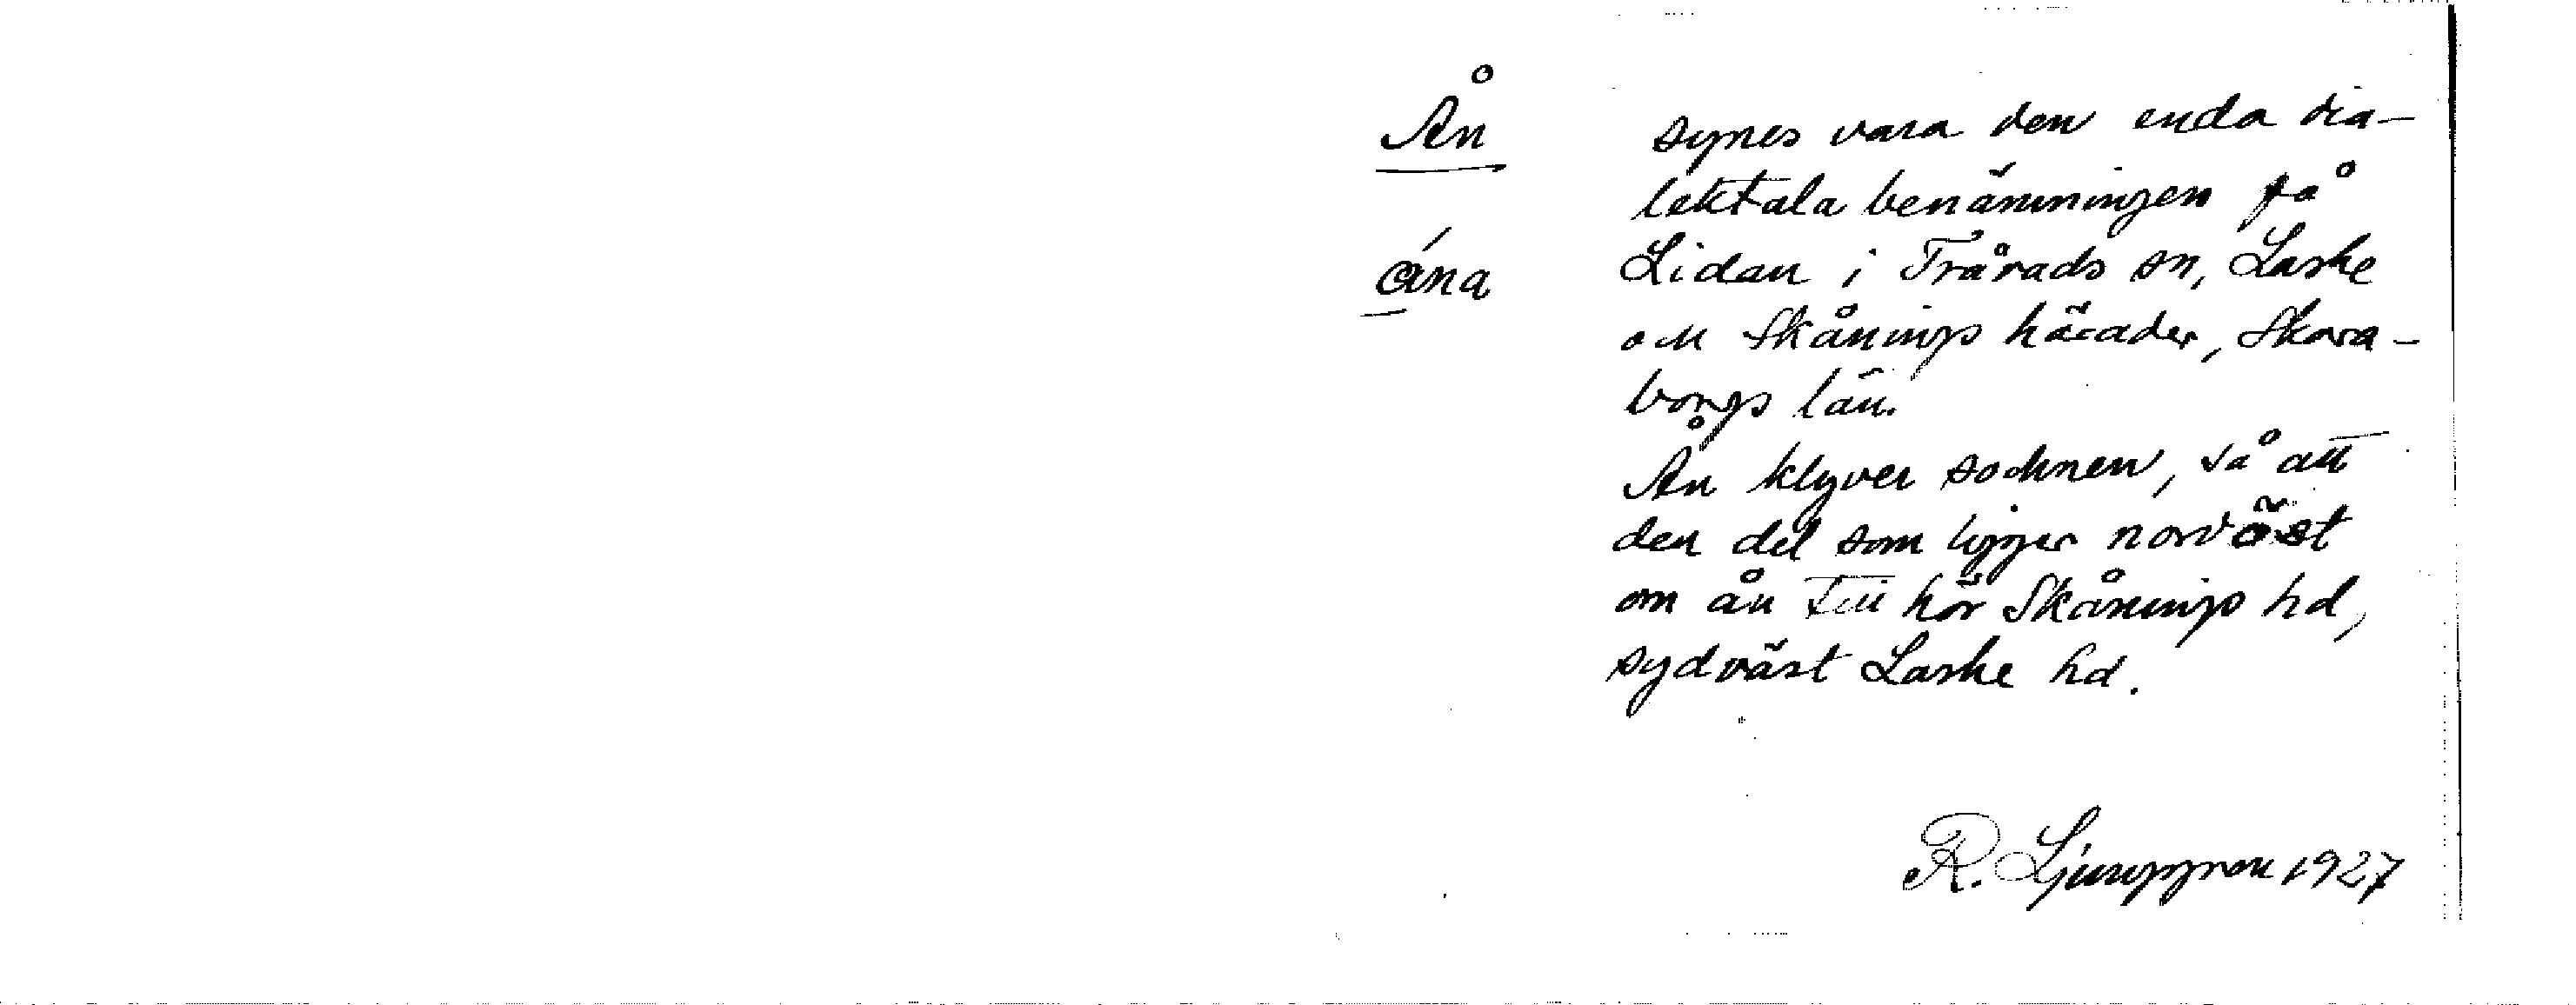 Ån
ána
synes vara den enda dia-
lektala benämningen på
Lidan i Trårads sn, Laske
och Skånings härader, Skara-
borgs län.
Ån klyver socknen, så att
den del som ligger nordöst
om ån till hör Skånings hd,
sydväst Laske hd.
R. Ljunggren 1927